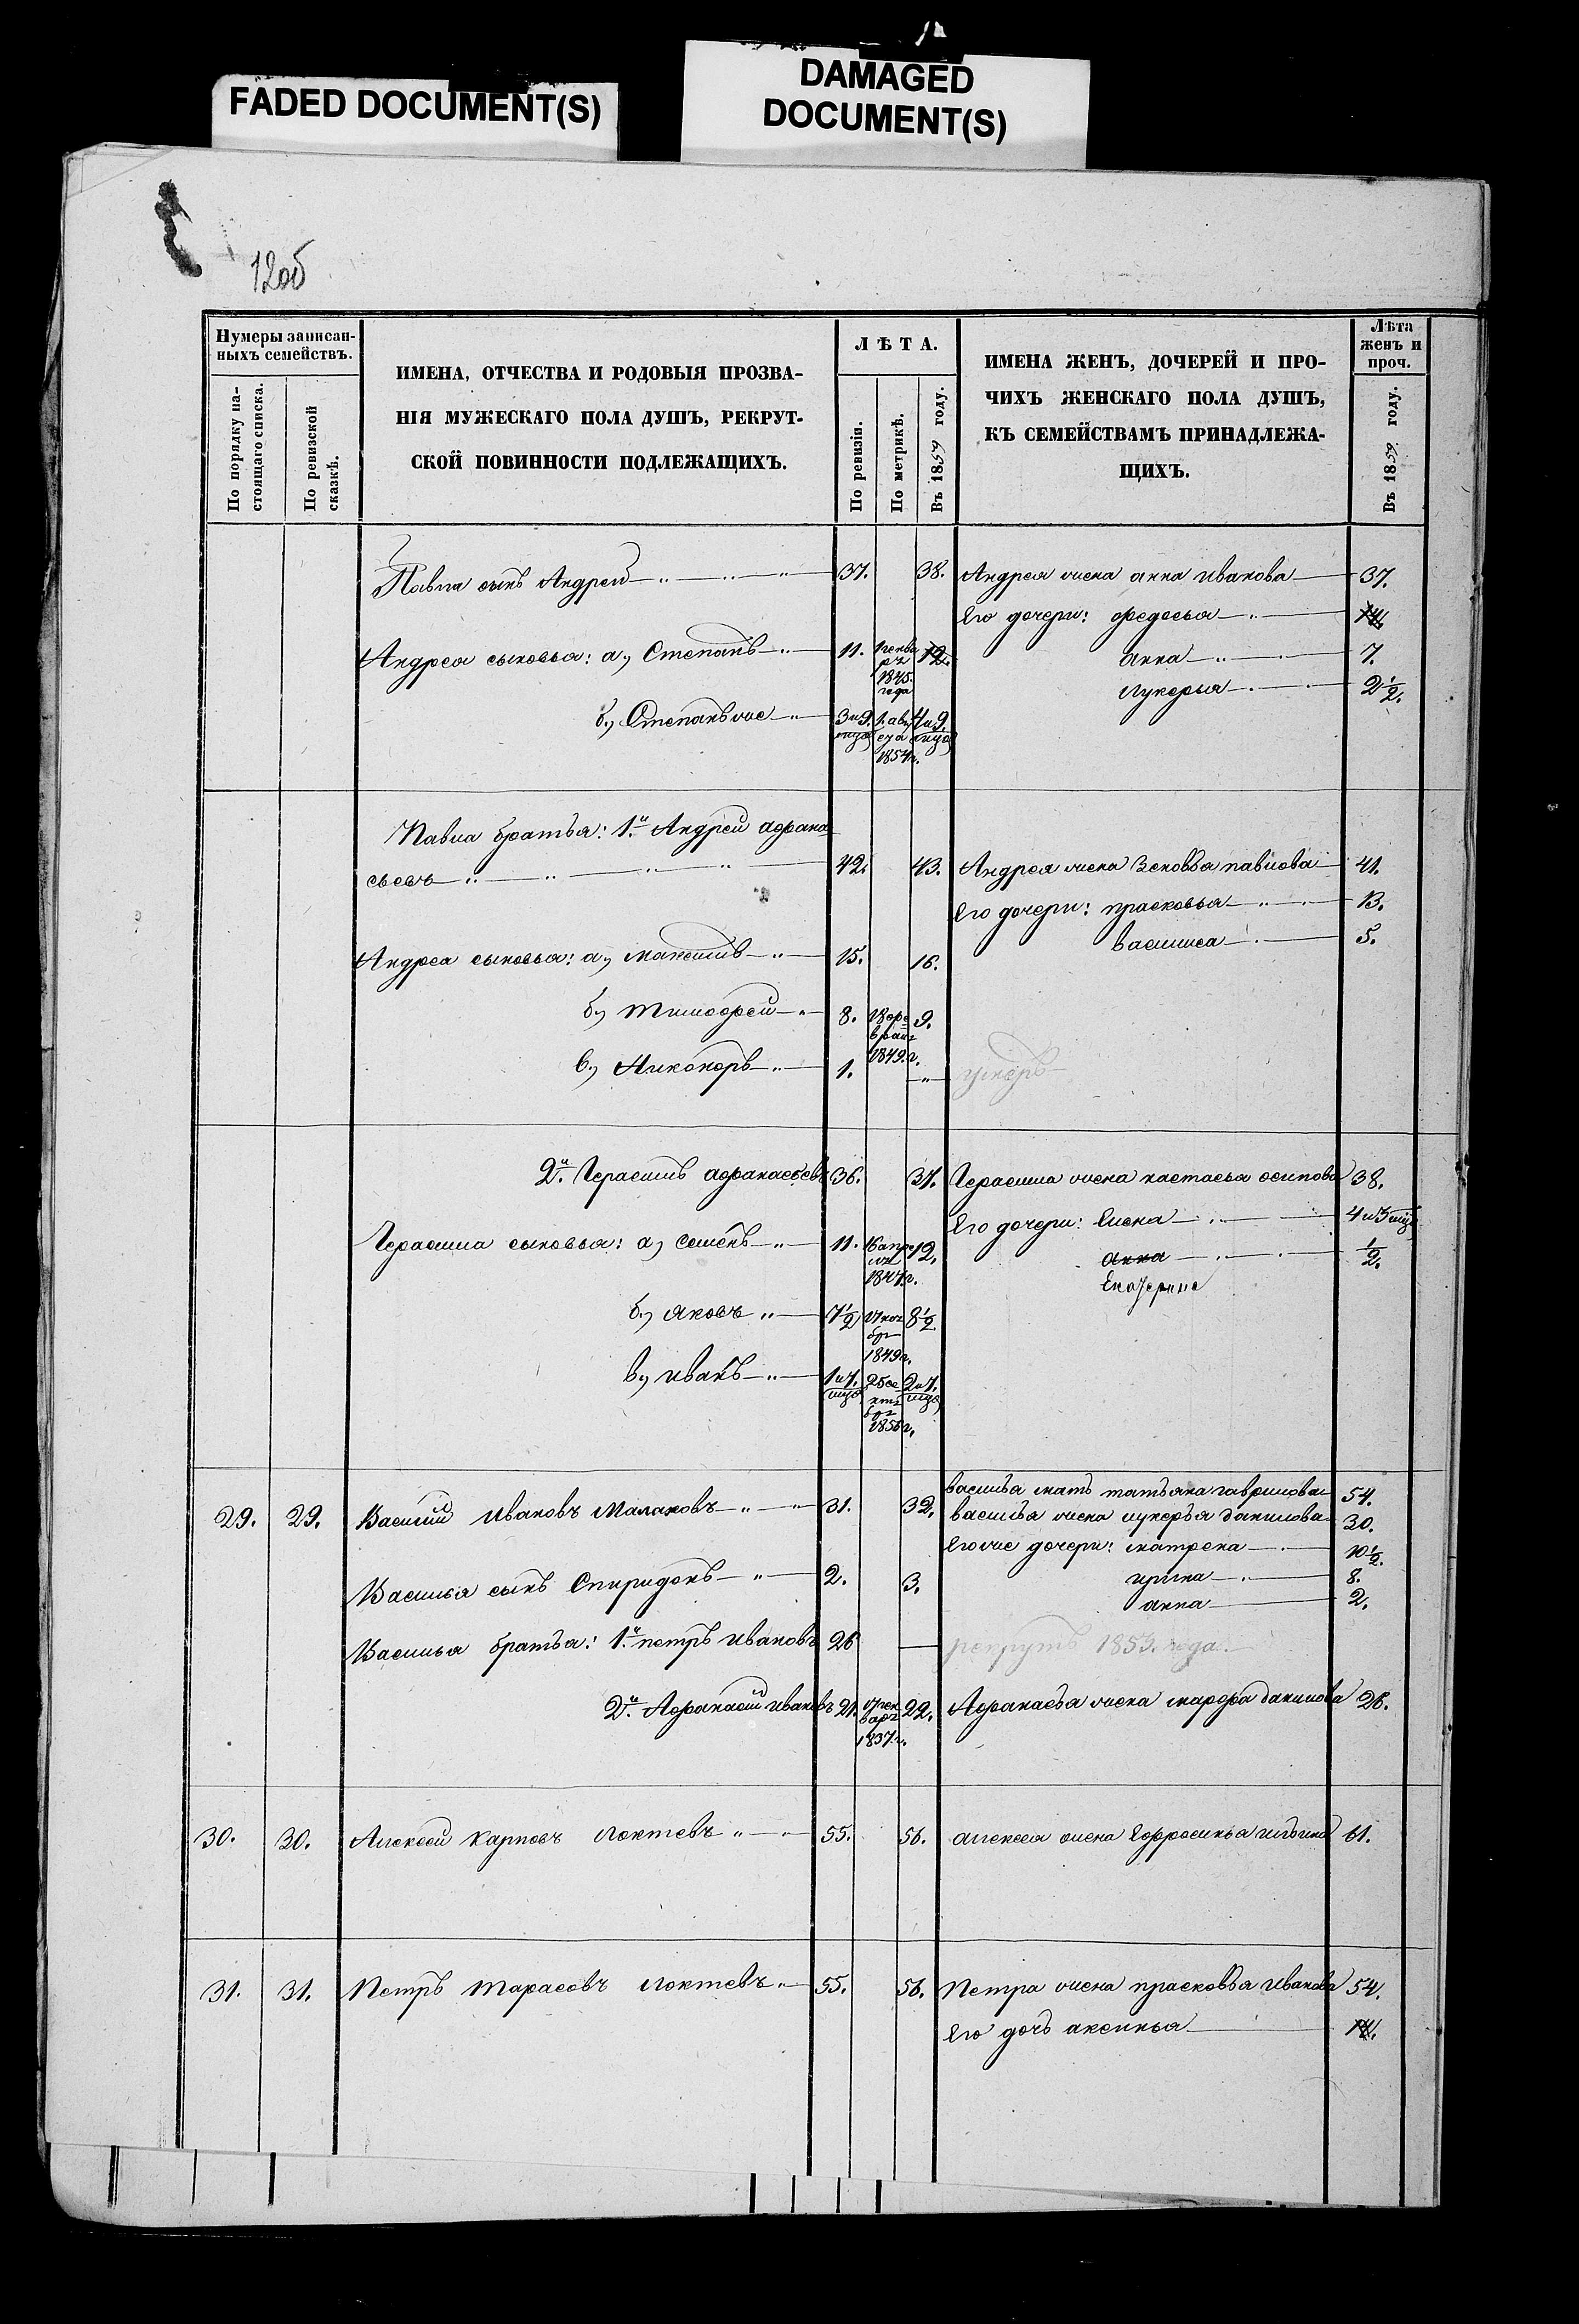 FADED DOCUMENT(S)
DAMAGED
DOCUMENT(S)
12об
Нумеры записан-
ныхъ семействъ.
По порядку на-
стоящаго списка.
По ревизской
сказкѣ.
ИМЕНА, ОТЧЕСТВА И РОДОВЫЯ ПРОЗВА-
НІЯ МУЖЕСКАГО ПОЛА ДУШЪ, РЕКРУТ-
СКОЙ ПОВИННОСТИ ПОДЛЕЖАЩИХЪ.
ЛѢТА.
По ревизіи.
По метрикѣ.
Въ 1859 году.
ИМЕНА ЖЕНЪ, ДОЧЕРЕЙ И ПРО-
ЧИХЪ ЖЕНСКАГО ПОЛА ДУШЪ,
КЪ СЕМЕЙСТВАМЪ ПРИНАДЛЕЖА-
ЩИХЪ.
Лѣта
женъ и
проч.
Въ 1859 году.
Павла сынъ Андрей 37. 38. Андрея жена анна иванова 37.
Его дочери: федосья
Андрея сыновья: а, Степанъ 11. 1845. года 12. анна 7.
лукерья 2 1/2.
б, Степанъ же 3 и 9. мцо 1. авг 1854 г. 4 и 9. мцо
Павла братья: 1й Андрей афана
сьевъ 42. 43. Андрея жена Зеновья павлова 41.
Его дочери: прасковья 13.
василиса 5.
Андрея сыновья: а, максимъ 15. 16.
б, Тимофей 8. 18 фе враля 1849. г. 9.
в, Никоноръ 1. умеръ
2й Герасимъ афанасьевъ 36. 37. Герасима жена настасья осипова 38.
Его дочери: Елена 4 и 5 мцо
Герасима сыновья: а, семенъ 11. 16 апре ля 1847. г. 12. анна 1/2.
Екатерина
б, яковъ 7 1/2 17 ноя бря 1849 г. 8 1/2
в, иванъ 1 и 7. мцо 25 се нтя бря 1856 г. 2 и 7. мцо
29. 29. Василій Ивановъ Малаховъ 31. 32. василья мать татьяна гаврилова 54.
василья жена лукерья данилова 30.
его же дочери: матрена 10 1/2.
Василья сынъ Спиридонъ 2. 3. ирина 8.
анна 2.
Василья братья: 1й петръ Ивановъ 26 рекрутъ 1853. года.
2й Афанасій Ивановъ 21. 17 ген варя 1837. г. 22. Афанасья жена марфа данилова 26.
30. 30. Алексей Карповъ Локтевъ 55. 56. алексея жена Ефросинья ильина 61.
31. 31. Петръ Тарасовъ Локтевъ 55. 56. Петра жена прасковья Иванова 54.
Его дочь аксинья